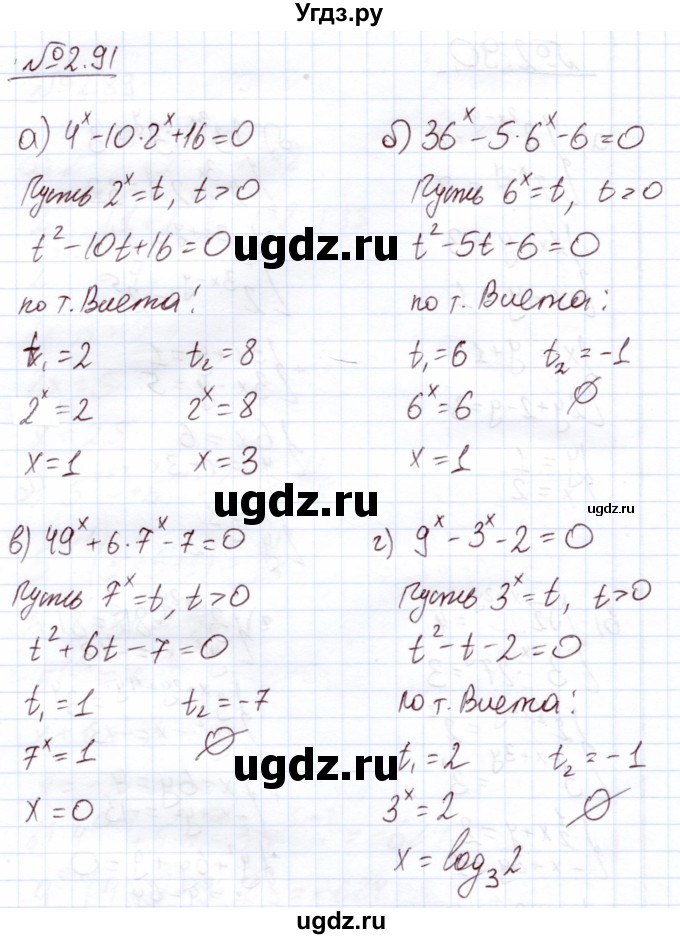 Угдз.ру
№2.91
а) 4^x - 10·2^x + 16 = 0
Пусть 2^x = t, t > 0
t^2 - 10t + 16 = 0
по т. Виета:
t₁ = 2 t₂ = 8
2^x = 2 2^x = 8
x = 1 x = 3
б) 36^x - 5·6^x - 6 = 0
Пусть 6^x = t, t > 0
t^2 - 5t - 6 = 0
по т. Виета:
t₁ = 6 t₂ = -1
6^x = 6 ∅
x = 1
ugdz.ru
ugdz.ru
ugdz.ru
в) 49^x + 6·7^x - 7 = 0
Пусть 7^x = t, t > 0
t^2 + 6t - 7 = 0
t₁ = 1 t₂ = -7
7^x = 1 ∅
x = 0
г) 9^x - 3^x - 2 = 0
Пусть 3^x = t, t > 0
t^2 - t - 2 = 0
по т. Виета:
t₁ = 2 t₂ = -1
3^x = 2 ∅
x = log₃2
ugdz.ru
ugdz.ru